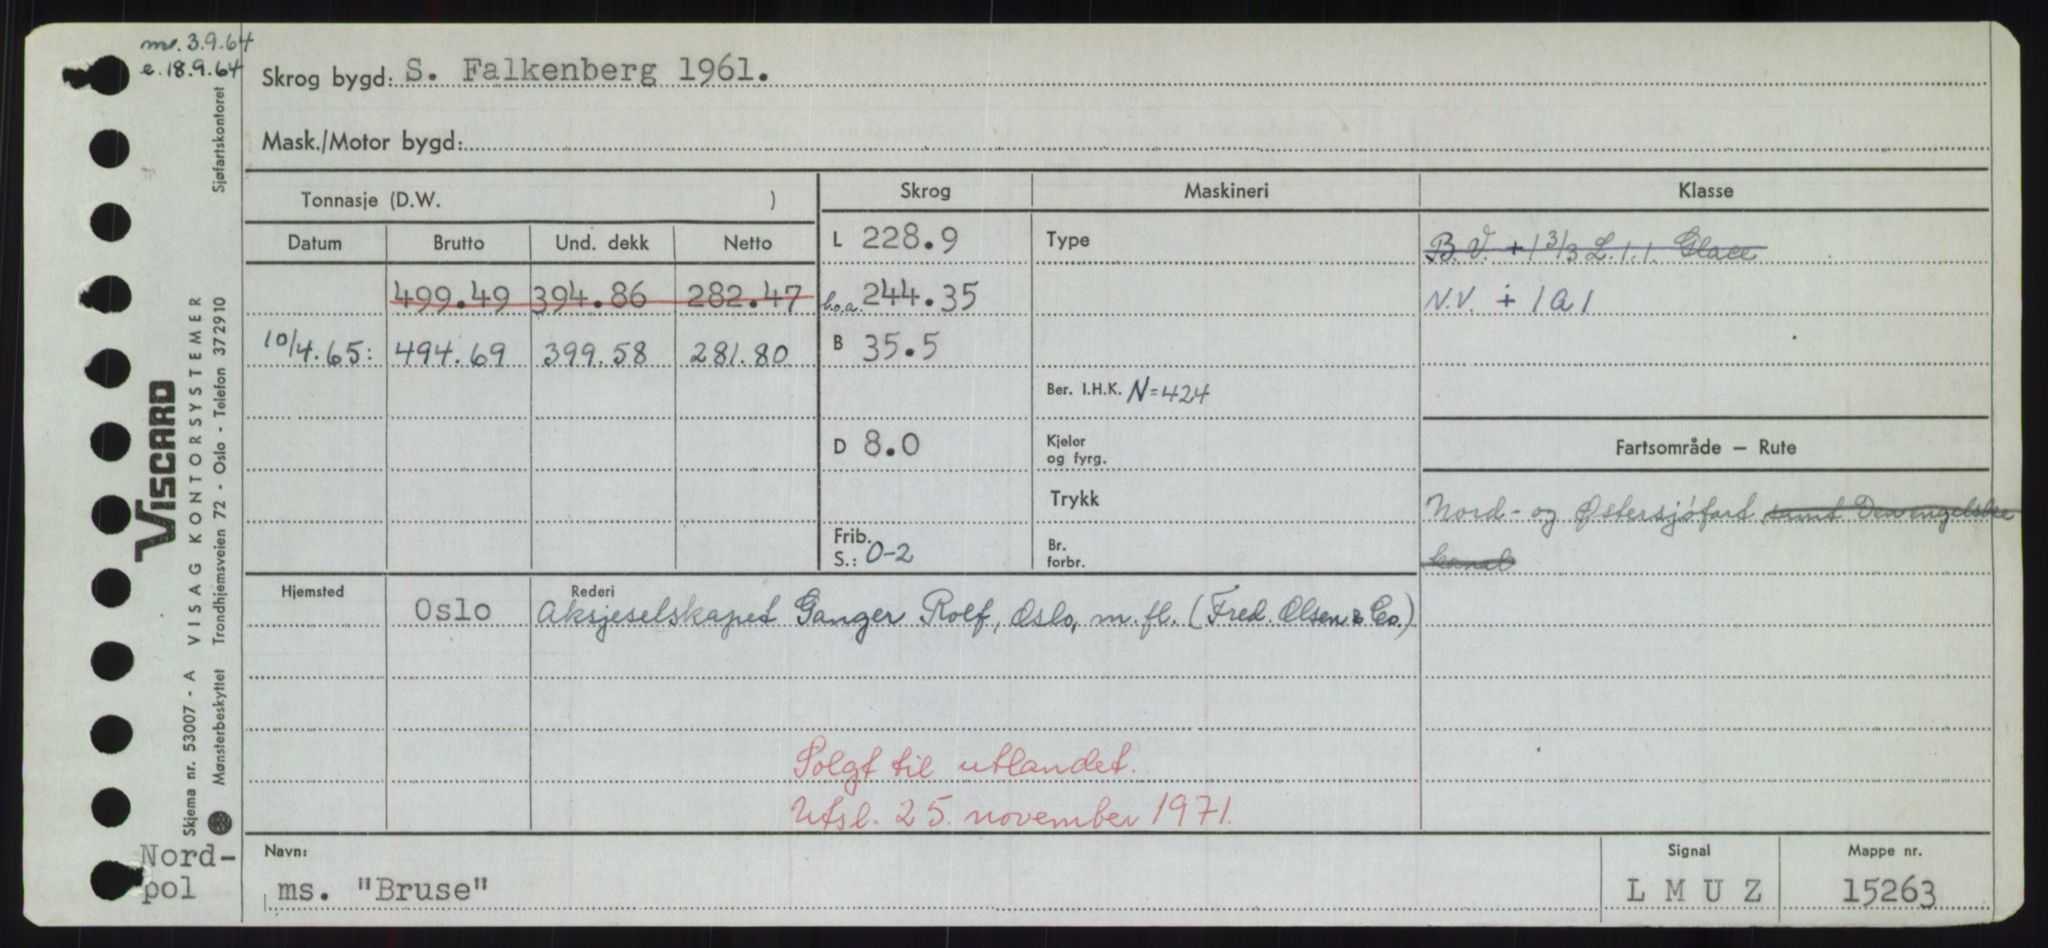 ms. 3.9.64
e. 18.9.64
Skrog bygd: S. Falkenberg 1961.
Mask./Motor bygd:
Tonnasje (D.W. )
Skrog
Maskineri
Klasse
Datum Brutto Und. dekk Netto
L 228.9
Type
B.V. + 1 3/3 L.1.1. Glace
499.49 394.86 282.47
l.o.a. 244.35
N.V. + 1A1
10/4.65: 494.69 399.58 281.80
B 35.5
Ber. I.H.K. N=424
D 8.0
Kjeler
og fyrg.
Fartsområde — Rute
Trykk
Nord- og Østersjöfart samt Den engelske
kanal
Frib.
S.: 0-2
Br.
forbr.
Hjemsted
Oslo
Rederi
Aksjeselskapet Ganger Rolf, Oslo, m.fl. (Fred. Olsen & Co.)
Solgt til utlandet.
Utsl. 25. november 1971.
Navn:
ms. "Bruse"
Signal
L M U Z
Mappe nr.
15263
Nord-
pol
VISCARD
Skjema nr. 53007 - A VISAG KONTORSYSTEMER
Mønsterbeskyttet Trondhjemsveien 72 - Oslo - Telefon 372910 Sjøfartskontoret